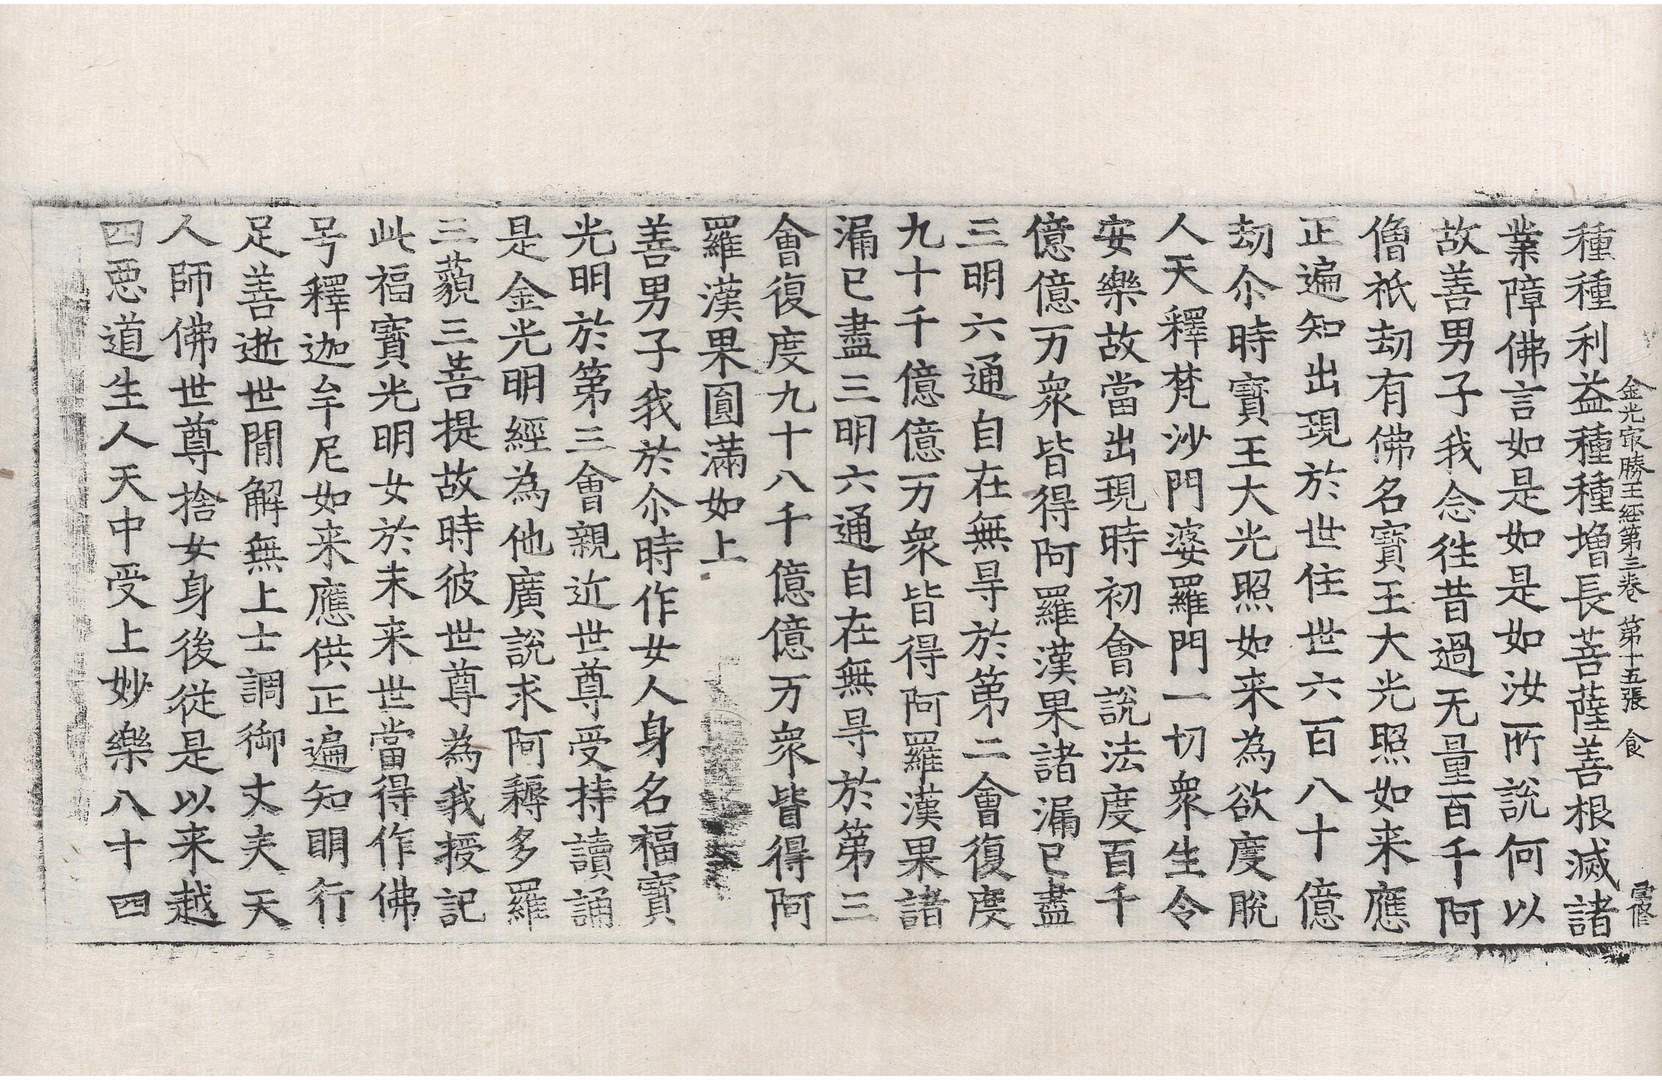 金光㝡勝王經第三卷 第十五張 食
種種利益種種增長菩薩善根滅諸
業障佛言如是如是如汝所說何以
故善男子我念往昔過无量百千阿
僧祇劫有佛名寶王大光照如来應
正遍知出現於世住世六百八十億
劫尒時寶王大光照如来為欲度脫
人天釋梵沙門婆羅門一切衆生令
安樂故當出現時初會說法度百千
億億万衆皆得阿羅漢果諸漏已盡
三明六通自在無㝵於第二會復度
九十千億億万衆皆得阿羅漢果諸
漏已盡三明六通自在無㝵於第三
會復度九十八千億億万衆皆得阿
羅漢果圓滿如上
善男子我於尒時作女人身名福寶
光明於第三會親近世尊受持讀誦
是金光明經為他廣說求阿耨多羅
三藐三菩提故時彼世尊為我授記
此福寶光明女於未来世當得作佛
号釋迦牟尼如来應供正遍知明行
足善逝世間解無上士調御丈夫天
人師佛世尊捨女身後從是以来越
四惡道生人天中受上妙樂八十四